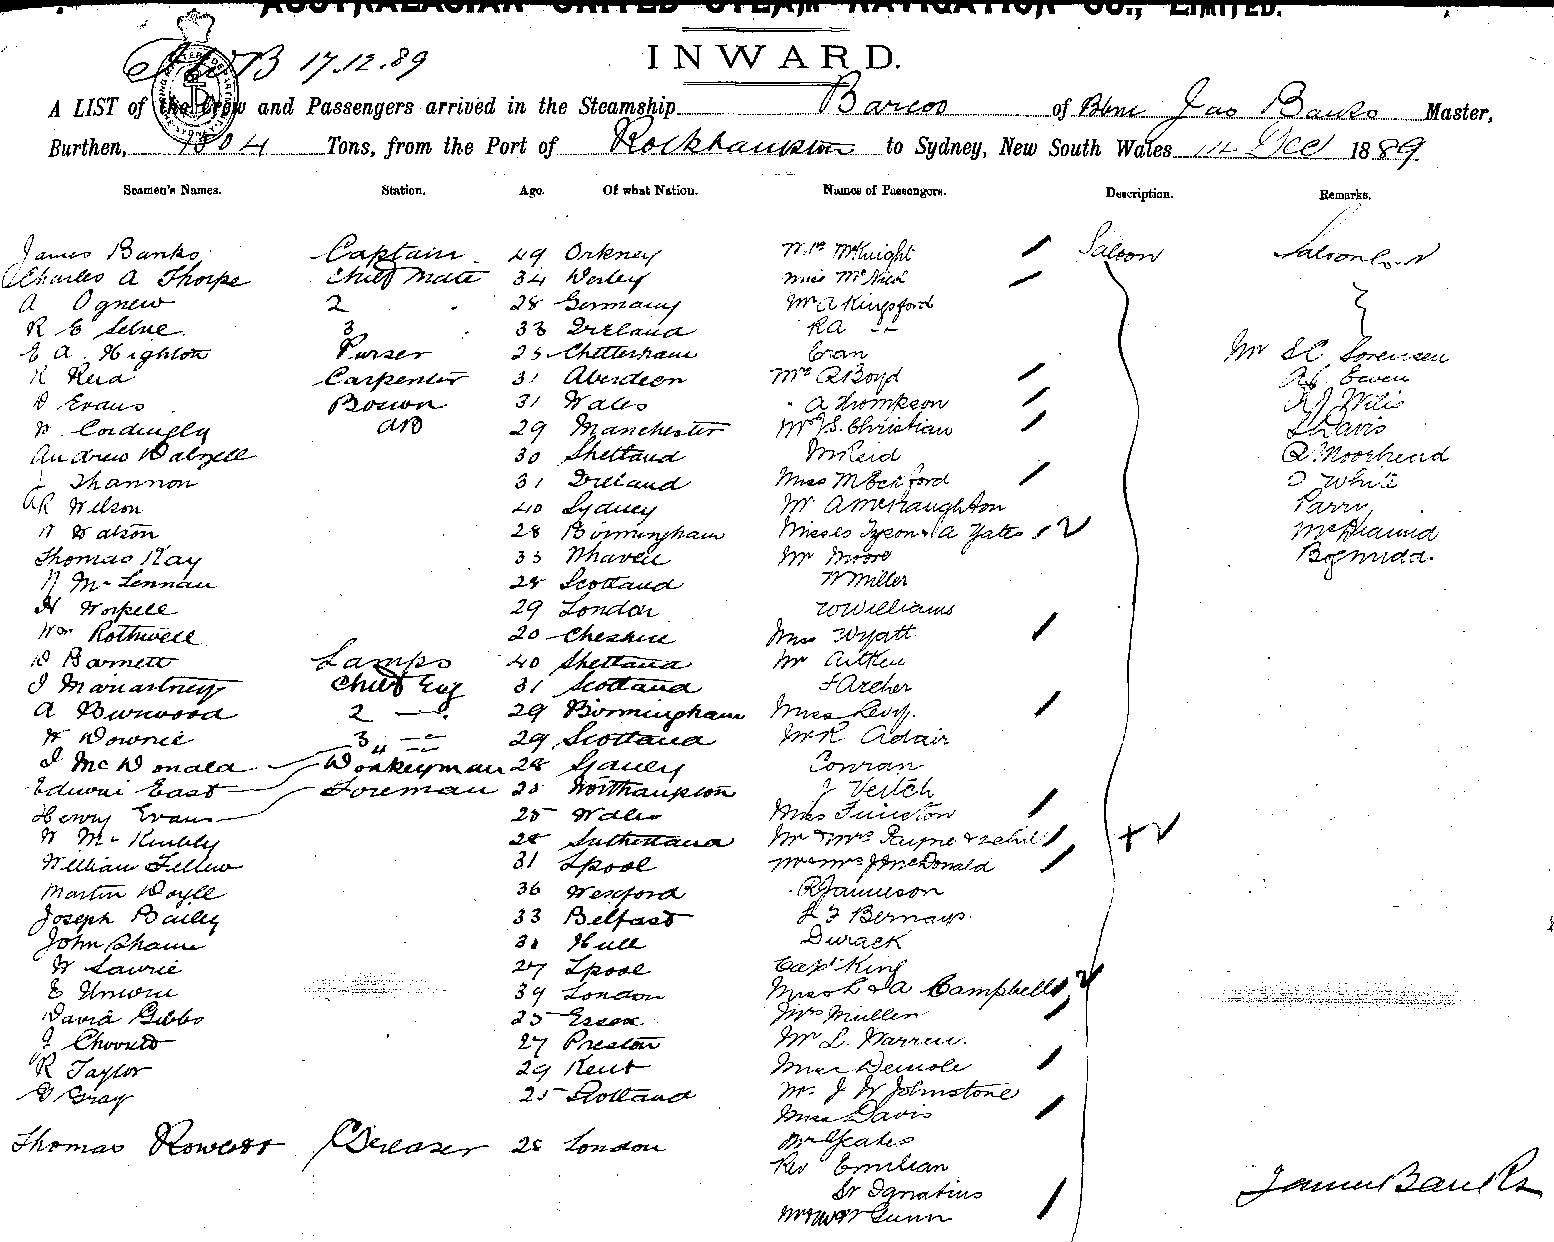 AUSTRALASIAN UNITED STEAM NAVIGATION CO., LIMITED.
17.12.89
INWARD.
A LIST of the Crew and Passengers arrived in the Steamship Barcoo of Bbne Jas Banks Master,
Burthen, 1504 Tons, from the Port of Rockhampton to Sydney, New South Wales 14 Dec 1889.
Seamen's Names. Station. Age. Of what Nation. Names of Passengers. Description. Remarks.
James Banks Captain 49 Orkney Mrs McKnight Saloon Saloon
Charles A Thorpe Chief Mate 34 Miss
A Ognew 2 28 Germany Mr A Kingsford
R E 3 33 Ireland RA
E A Highton Purser 25 Cheltenham Cran Mr S C Sorensen
R Reid Carpenter 31 Aberdeen Mrs Boyd Ewen
D Evans Bosun 31 Wales A Thompson
W Cordingly AB 29 Manchester Mrs S. Christian Davis
Andrew Dalzell 30 Shetland Mr Reid Moorhead
Shannon 31 Ireland Miss M Beckford White
AR Wilson 40 Sydney Mr A McNaughton Parry
W Watson 28 Birmingham Misses Tyson & A Yates 2
Thomas Kay 33 Whaven Mr Moore
N McLennan 28 Scotland W Miller
H Worpell 29 London W Williams
Wm Rothwell 20 Cheshire Miss Wyatt
D Barnett Lamps 40 Shetland Mr Aitken
Chief Eng 31 Scotland F Archer
A Burwood 2 29 Birmingham Miss Levy.
W Downie 3 29 Scotland Mr R Adair
J McDonald 4 Donkeyman 28 Sydney Conran
Edwin East Foreman 25 Northampton J Veitch
Henry Evans 25 Wales Miss Funston
W McKinbly 28 Sutherland Mr & Mrs Payne & child
William Fellow 31 Lpool Mr & Mrs J McDonald
Martin Doyle 36 Wexford R Jamieson
Joseph Bailey 33 Belfast Bernays
John Shaw 31 Hull Durack
W Lawrie 27 Lpool Capt King
E Unwin 39 London Misses & A Campbell 2
David Gibbs 25 Essex Mrs Mullen
J 27 Preston Mr L. Warren
R Taylor 29 Kent Miss
G Gray 25 Scotland Mr J W Johnstone
Miss Davis
Thomas Greaser 28 London Mr Yeates
Rev Emilian
Sr Ignatius
Gunn
James Banks